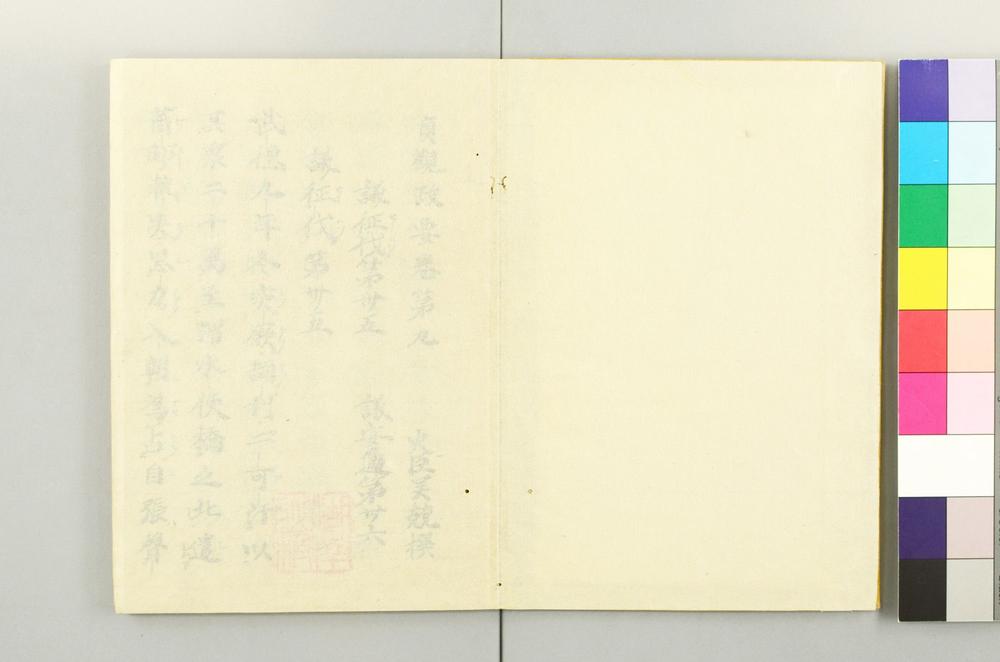 貞觀政要卷第九 史臣吳兢撰
議征伐第卅五 議安邊第卅六
議征伐第卅五
武德九年冬突厥頡利二可汗以
其衆二十萬至渭水便橋之北遣
酋帥執失思力入朝爲占自張聲